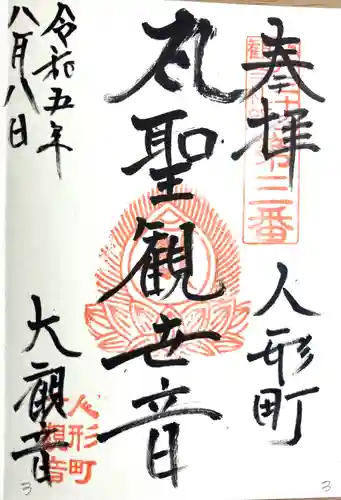 奉拝
第三番
人形町
聖観世音
大観音
人形町
大観音
令和五年
八月八日
3
3